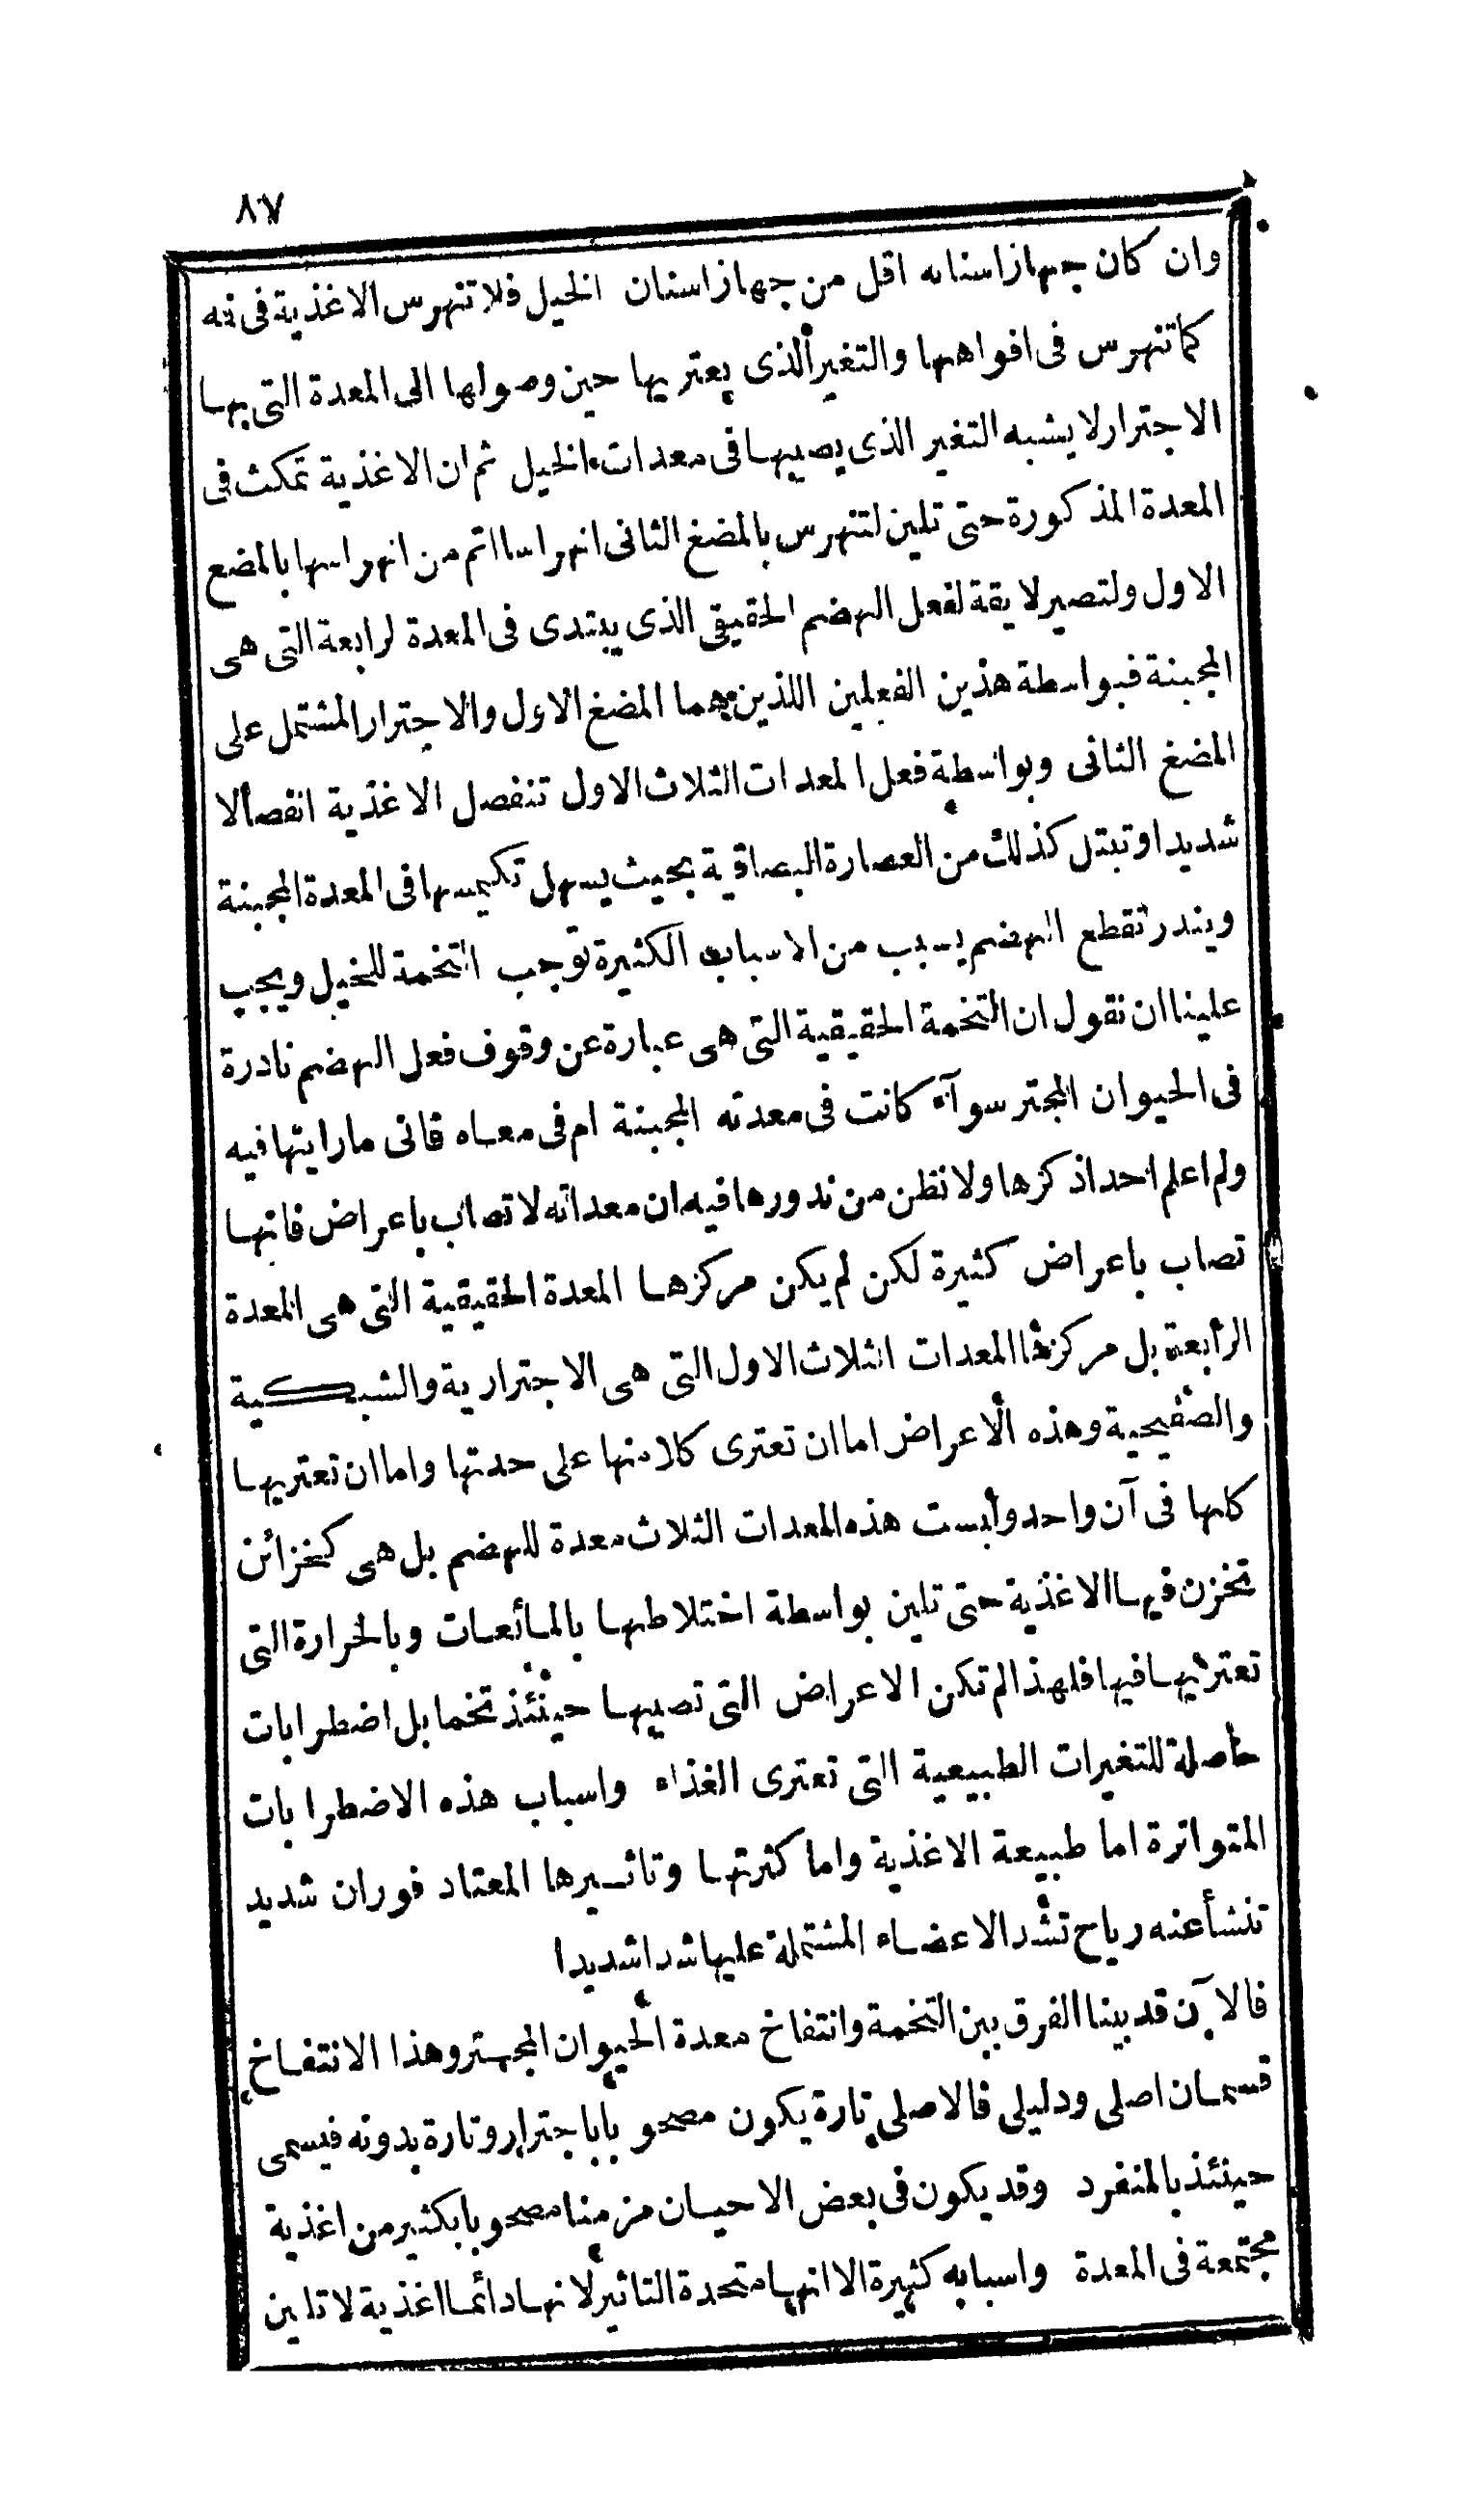 ٨٧
وان كان جهاز اسنانه اقل من جهاز اسنان الخيل فلا تنهرس الاغذية فى فمه
كما تنهرس فى افواهها والتغير الذى يعتريها حين وصولها الى المعدة التى بها
الاجترار لا يشبه التغير الذى يصيبها فى معدات الخيل ثم ان الاغذية تمكث فى
المعدة المذكورة حتى تلين لتنهرس بالمضغ الثانى انهراسا اتم من انهراسها بالمضغ
الاول ولتصير لايقة لفعل الهضم الحقيقى الذى يبتدى فى المعدة لرابعة التى هى
المجبنة فبواسطة هذين الفعلين اللذين هما المضغ الاول والاجترار المشتمل على
المضغ الثانى وبواسطة فعل المعدات الثلاث الاول تنفصل الاغذية انفصالا
شديدا وتبتل كذلك من العصارة البصاقية بحيث يسهل تكيمسها فى المعدة المجبنة
ويندر تقطع الهضم بسبب من الاسباب الكثيرة توجب التخمة للخيل ويجب
علينا ان نقول ان التخمة الحقيقية التى هى عبارة عن وقوف فعل الهضم نادرة
فى الحيوان المجتر سوآء كانت فى معدته المجبنة ام فى معاه فانى ما رايتها فيه
ولم اعلم احدا ذكرها ولا نظن من ندورها فيه ان معداته لا تصاب باعراض فانها
تصاب باعراض كثيرة لكن لم يكن مركزها المعدة الحقيقية التى هى المعدة
الرابعة بل مركزها المعدات الثلاث الاول التى هى الاجترارية والشبكية
والصفيحية وهذه الاعراض اما ان تعترى كلا منها على حدتها واما ان تعتريها
كلها فى آن واحد وليست هذه المعدات الثلاث معدة للهضم بل هى كخزائن
تخزن فيها الاغذية حتى تلين بواسطة اختلاطها بالمائعات وبالحرارة التى
تعتريها فيها فلهذا لم تكن الاعراض التى تصيبها حينئذ تخما بل اضطرابات
حاصلة للتغيرات الطبيعية التى تعترى الغذاء واسباب هذه الاضطرابات
المتواترة اما طبيعة الاغذية واما كثرتها وتاثيرها المعتاد فوران شديد
تنشأ عنه رياح تشد الاعضاء المشتملة عليها شدا شديدا
فالآن قد بينا الفرق بين التخمة وانتفاخ معدة الحيوان المجتر وهذا الانتفاخ
قسمان اصلى ودليلى فالاصلى تارة يكون مصحوبا باجترار وتارة بدونه فيسمى
حينئذ بالمنفرد وقد يكون فى بعض الاحيان مزمنا مصحوبا بكثير من اغذية
مجتمعة فى المعدة واسبابه كثيرة الا انها متحدة التاثير لانها دائما اغذية لا تلين